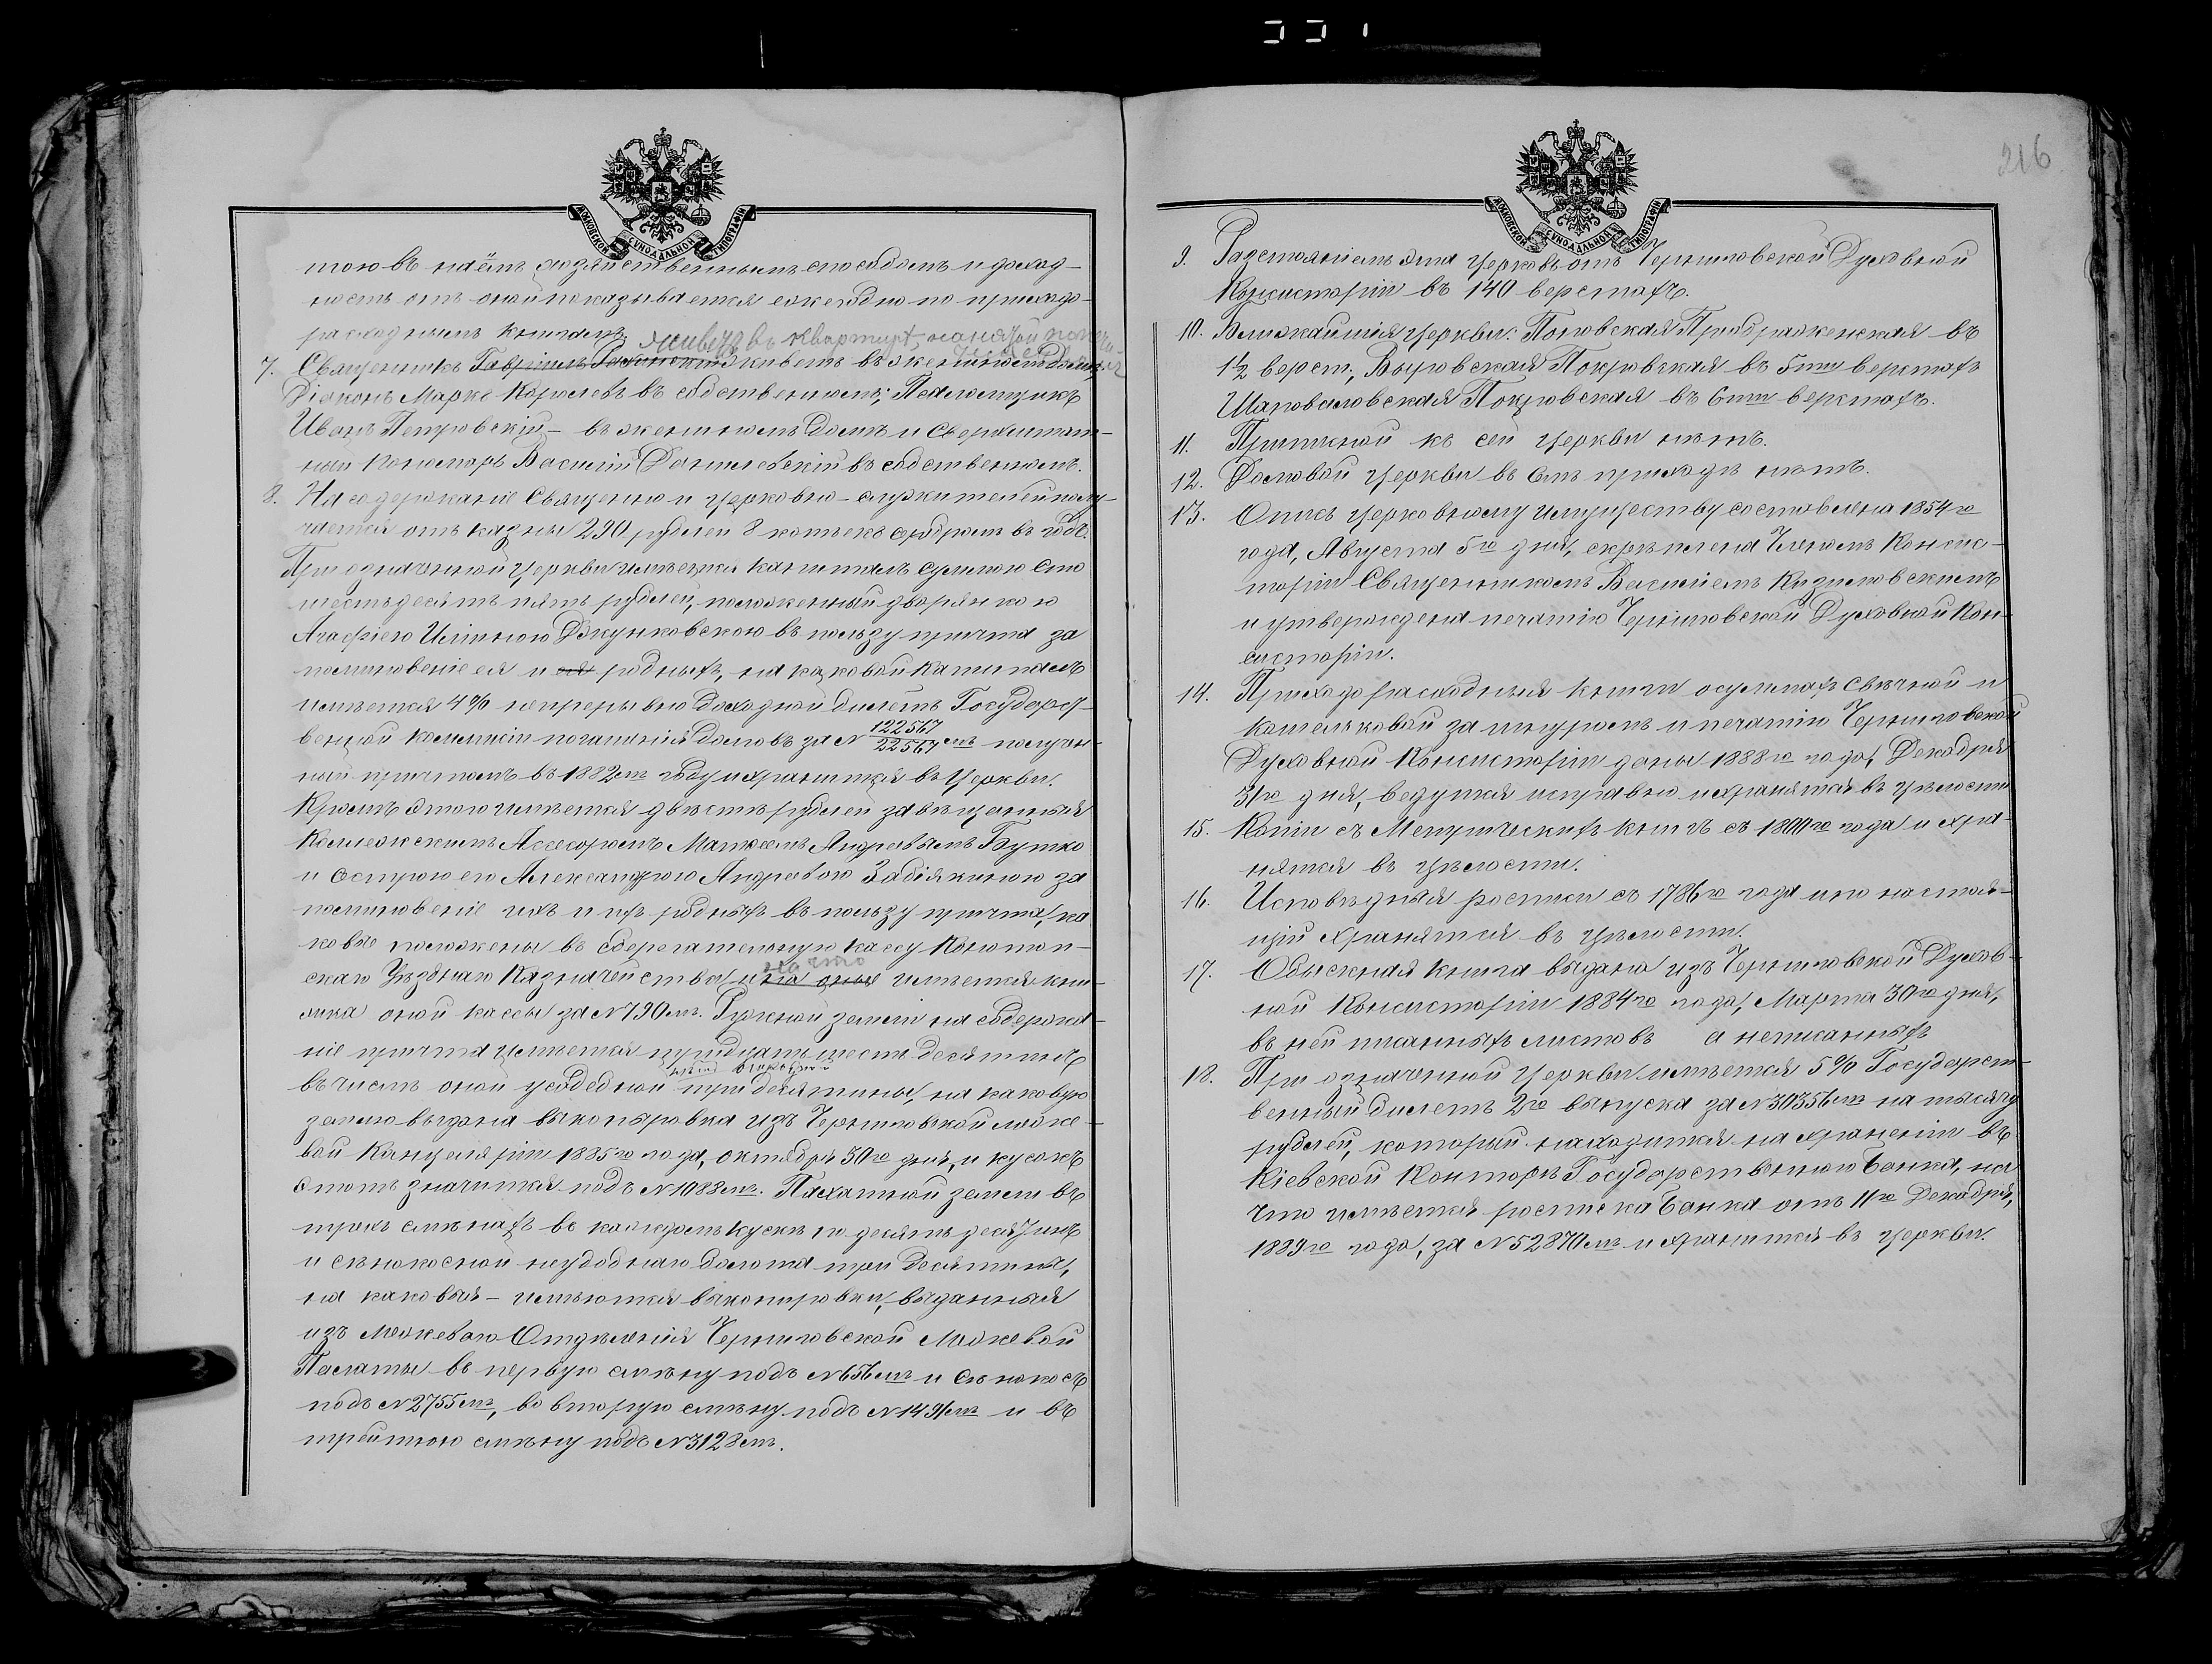 МОСКОВСКОЙ СѴНОДАЛЬНОЙ ТИПОГРАФІИ
тою въ наёмъ хозяйственнымъ способомъ и доход-
ность отъ оной показывается ежегодно по приходо-
расходнымъ книгамъ.
живетъ въ квартирѣ
7. Священникъ Гавріилъ живетъ въ женинномъ домѣ,
Діаконъ Марко Королевъ въ собственномъ; Псаломщикъ
Иванъ Петровскій – въ женинномъ домѣ и Сверхштат-
ный Пономарь Василій Данилевскій въ собственномъ.
8. На содержаніе Священно и церковно-служителей полу-
чается отъ казны 290 рублей 8 копѣекъ серебромъ въ годъ.
При означенной церкви имѣется капиталъ суммою сто
шестьдесятъ пять рублей, положенный дворянкою
Агафіею Иліиною Джунковскою въ пользу причта за
поминовеніе ея и ея родныхъ, на каковой капиталъ
имѣется 4% непрерывно доходной билетъ Государст-
венной коммисіи погашенія долговъ за N 122567/22567мъ получен-
ный причтомъ въ 1882мъ году и хранится въ церкви.
Кромѣ этого имѣется двѣсти рублей завѣщанныя
Коллежскимъ Ассесоромъ Матѳеемъ Андреевымъ Бутко
и сестрою его Александрою Андреевою Забіякиною за
поминовеніе ихъ и ихъ родныхъ въ пользу причта, ка-
ковые положены въ сберегательную кассу Конотоп-
скаго Уѣзднаго Казначейства, и на оныя имѣется кни-
на что
жка оной кассы за N 790мъ. Ружной земли на содержа-
ніе причта имѣется тридцать шесть десятинъ
въ числѣ оной усадебной три десятины, на каковую
землю выдана выкопировка изъ Черниговской меже-
вой Канцеляріи 1885го года, октября 30го дня, и кусокъ
этотъ значится подъ N 1088мъ. Пахатной земли въ
трехъ смѣнахъ въ каждомъ кускѣ по десять десятинъ
и сѣнокосной неудобнаго болота три десятины,
на каковыя – имѣются выкопировки, выданныя
изъ Межеваго Отдѣленія Черниговской Межевой
Палаты въ первую смѣну подъ N 656мъ и сѣнокосъ
подъ N 2755мъ, во вторую смѣну подъ N 1491мъ и въ
третью смѣну подъ N 3128мъ.
216
МОСКОВСКОЙ СѴНОДАЛЬНОЙ ТИПОГРАФІИ
9. Разстояніемъ эта церковь отъ Черниговской Духовной
Консисторіи въ 140 верстахъ.
10. Ближайшія церкви: Поповская Преображенская въ
1½ верст., Выровская Покровская въ 5ти верстахъ
Шаповаловская Покровская въ 6ти верстахъ.
11. Приписной къ сей церкви нѣтъ.
12. Домовой церкви въ семъ приходѣ нѣтъ.
13. Опись церковному имуществу составлена 1854го
года, Августа 5го дня, скрѣплена Членомъ Консис-
торіи Священникомъ Василіемъ
и утверждена печатію Черниговской Духовной Кон-
систоріи.
14. Приходорасходныя книги о суммахъ свѣчной и
кошельковой за шнуромъ и печатію Черниговской
Духовной Консисторіи даны 1888го года, Декабря
31го дня, ведутся исправно и хранятся въ цѣлости
15. Копіи съ Метрическихъ книгъ съ 1800го года и хра-
нятся въ цѣлости.
16. Исповѣдныя росписи съ 1786го года и по настоя-
щій хранятся въ цѣлости.
17. Обыскная книга выдана изъ Черниговской Духов-
ной Консисторіи 1884го года, Марта 30го дня,
въ ней писанныхъ листовъ а неписанныхъ
18. При означенной церкви имѣется 5% Государст-
венный билетъ 2го выпуска за N 30356мъ на тысячу
рублей, который находится на храненіи въ
Кіевской Конторѣ Государственнаго Банка, на
что имѣется росписка Банка отъ 11го Декабря,
1889го года, за N 52870мъ и хранится въ церкви.